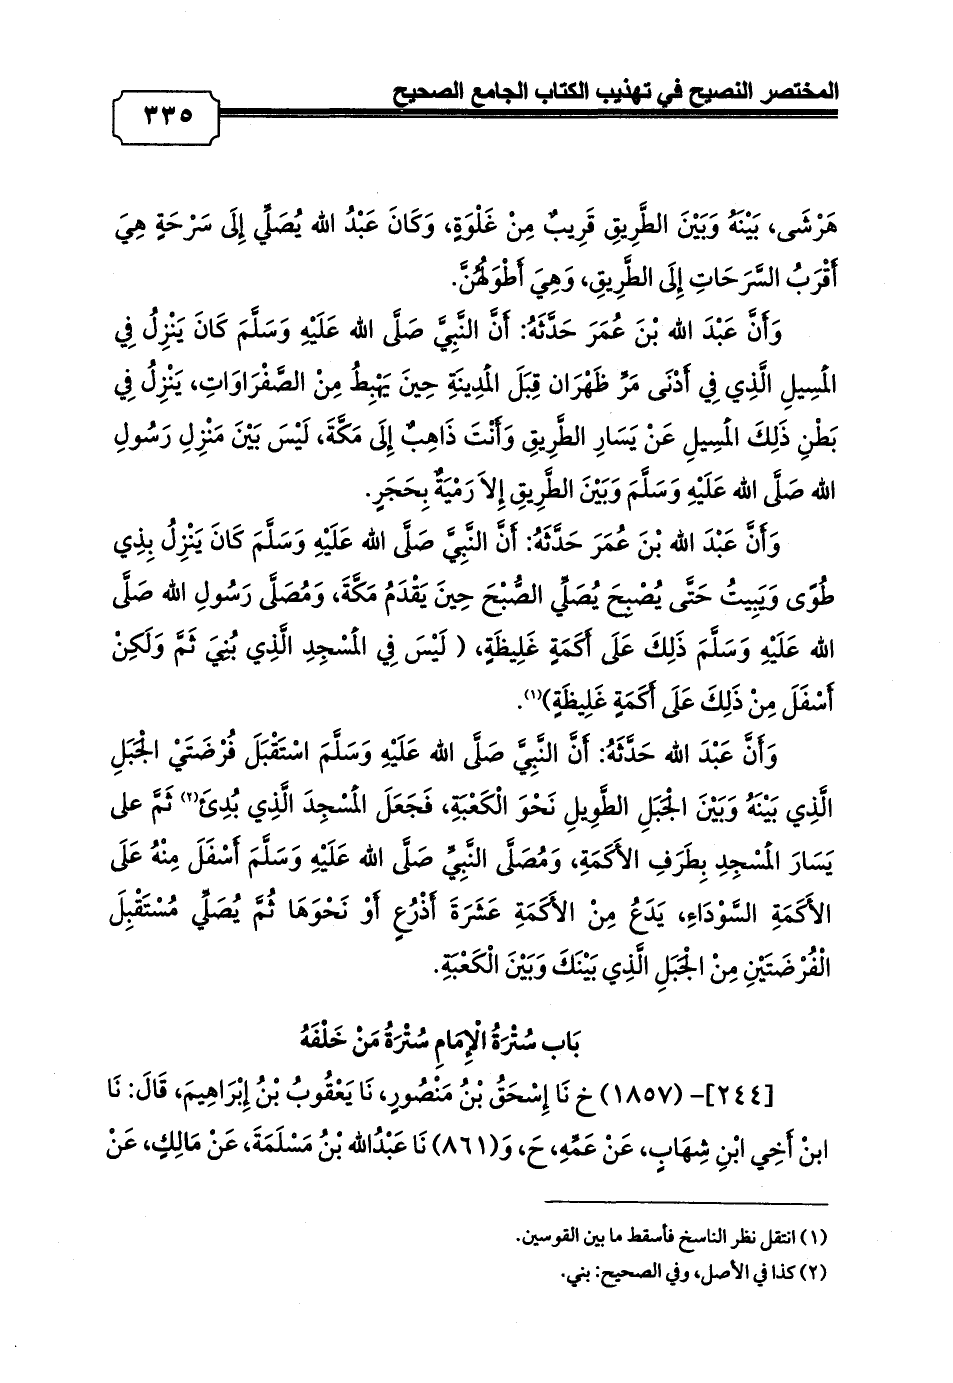 المختصر النصيح في تهذيب الكتاب الجامع الصحيح
٣٣٥
هَرْشَى، بَيْنَهُ وَبَيْنَ الطَّرِيقِ قَرِيبٌ مِنْ غَلْوَةٍ، وَكَانَ عَبْدُ الله يُصَلِّي إِلَى سَرْحَةٍ هِيَ
أَقْرَبُ السَّرَحَاتِ إِلَى الطَّرِيقِ، وَهِيَ أَطْوَلُهُنَّ.
وَأَنَّ عَبْدَ الله بْنَ عُمَرَ حَدَّثَهُ: أَنَّ النَّبِيَّ صَلَّى الله عَلَيْهِ وَسَلَّمَ كَانَ يَنْزِلُ فِي
الْمَسِيلِ الَّذِي فِي أَدْنَى مَرِّ ظَهْرَان قِبَلَ الْمَدِينَةِ حِينَ يَهْبِطُ مِنْ الصَّفْرَاوَاتِ، يَنْزِلُ فِي
بَطْنِ ذَلِكَ الْمَسِيلِ عَنْ يَسَارِ الطَّرِيقِ وَأَنْتَ ذَاهِبٌ إِلَى مَكَّةَ، لَيْسَ بَيْنَ مَنْزِلِ رَسُولِ
الله صَلَّى الله عَلَيْهِ وَسَلَّمَ وَبَيْنَ الطَّرِيقِ إِلاَ رَمْيَةٌ بِحَجَرٍ.
وَأَنَّ عَبْدَ الله بْنَ عُمَرَ حَدَّثَهُ: أَنَّ النَّبِيَّ صَلَّى الله عَلَيْهِ وَسَلَّمَ كَانَ يَنْزِلُ بِذِي
طُوًى وَيَبِيتُ حَتَّى يُصْبِحَ يُصَلِّي الصُّبْحَ حِينَ يَقْدَمُ مَكَّةَ، وَمُصَلَّى رَسُولِ الله صَلَّى
الله عَلَيْهِ وَسَلَّمَ ذَلِكَ عَلَى أَكَمَةٍ غَلِيظَةٍ، ( لَيْسَ فِي الْمَسْجِدِ الَّذِي بُنِيَ ثَمَّ وَلَكِنْ
أَسْفَلَ مِنْ ذَلِكَ عَلَى أَكَمَةٍ غَلِيظَةٍ)(١).
وَأَنَّ عَبْدَ الله حَدَّثَهُ: أَنَّ النَّبِيَّ صَلَّى الله عَلَيْهِ وَسَلَّمَ اسْتَقْبَلَ فُرْضَتَيْ الْجَبَلِ
الَّذِي بَيْنَهُ وَبَيْنَ الْجَبَلِ الطَّوِيلِ نَحْوَ الْكَعْبَةِ، فَجَعَلَ الْمَسْجِدَ الَّذِي بُدِئَ(٢) ثَمَّ على
يَسَارَ الْمَسْجِدِ بِطَرَفِ الأَكَمَةِ، وَمُصَلَّى النَّبِيِّ صَلَّى الله عَلَيْهِ وَسَلَّمَ أَسْفَلَ مِنْهُ عَلَى
الأَكَمَةِ السَّوْدَاءِ، يَدَعُ مِنْ الأَكَمَةِ عَشَرَةَ أَذْرُعٍ أَوْ نَحْوَهَا ثُمَّ يُصَلِّي مُسْتَقْبِلَ
الْفُرْضَتَيْنِ مِنْ الْجَبَلِ الَّذِي بَيْنَكَ وَبَيْنَ الْكَعْبَةِ.
بَاب سُتْرَةُ الْإِمَامِ سُتْرَةُ مَنْ خَلْفَهُ
[٢٤٤]- (١٨٥٧) خ نَا إِسْحَقُ بْنُ مَنْصُورٍ، نَا يَعْقُوبُ بْنُ إِبْرَاهِيمَ، قَالَ: نَا
ابنُ أَخِي ابْنِ شِهَابٍ، عَنْ عَمِّهِ، حَ، وَ(٨٦١) نَا عَبْدُالله بْنُ مَسْلَمَةَ، عَنْ مَالِكٍ، عَنْ
(١) انتقل نظر الناسخ فأسقط ما بين القوسين.
(٢) كذا في الأصل، وفي الصحيح: بني.